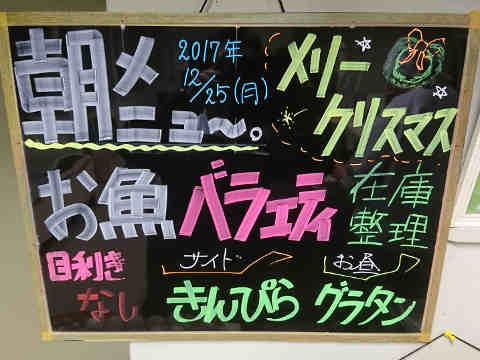 朝メニュ〜。
2017年
12/25(月)
メリー
クリスマス
お魚バラエティ
在庫
整理
目利き
なし
サイド
きんぴら
お昼
グラタン